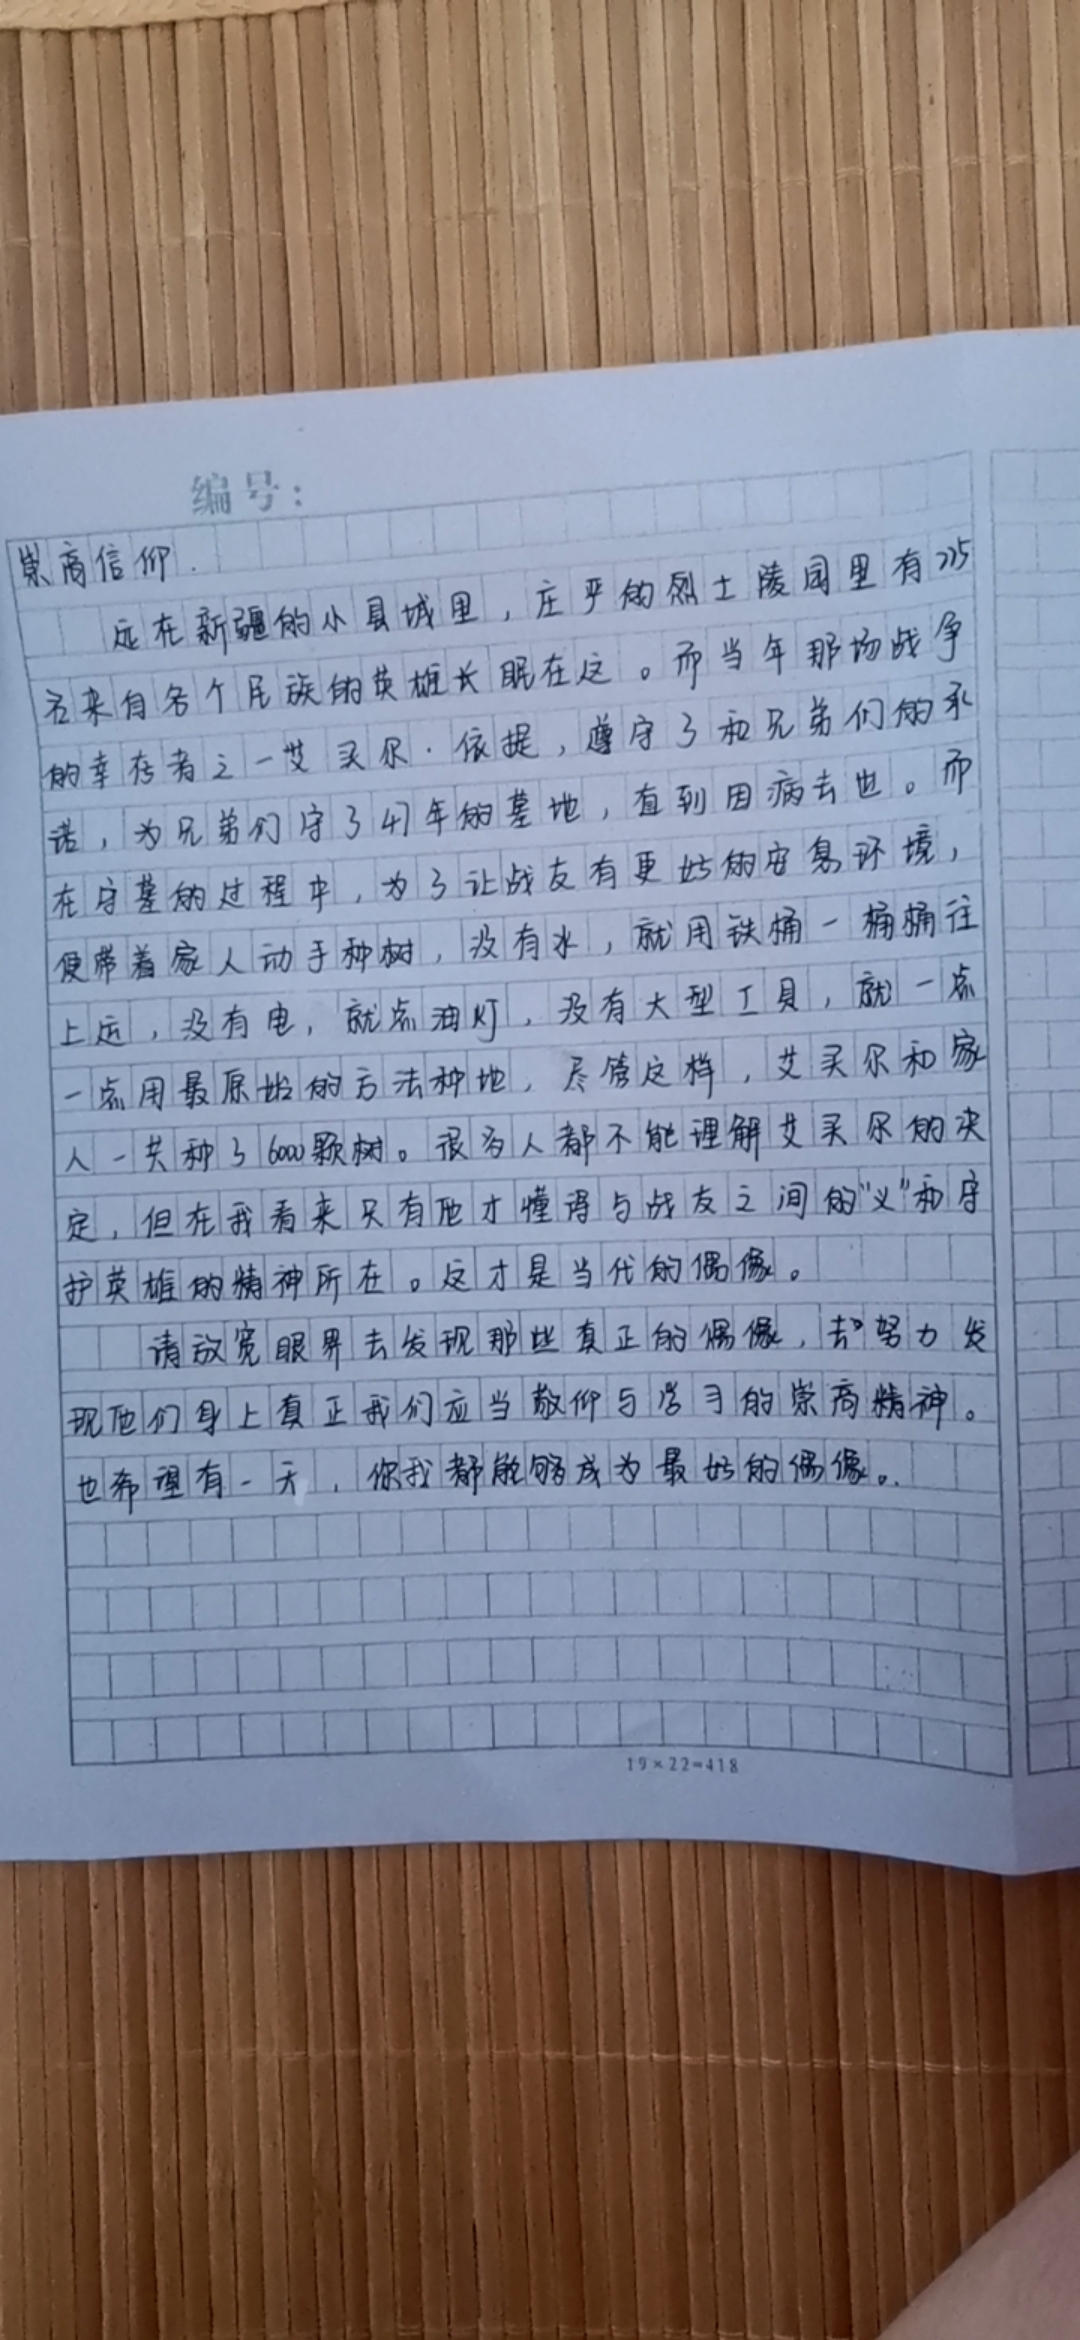 编号:
崇高信仰.
远在新疆的小县城里,庄严的烈士陵园里有225
名来自各个民族的英雄长眠在这。而当年那场战争
的幸存者之一艾买尔·依提,遵守了和兄弟们的承
诺,为兄弟们守了47年的墓地,直到因病去世。而
在守墓的过程中,为了让战友有更好的安息环境,
便带着家人动手种树,没有水,就用铁桶一桶桶往
上运,没有电,就点油灯,没有大型工具,就一点
一点用最原始的方法种地,尽管这样,艾买尔和家
人一共种了6000颗树。很多人都不能理解艾买尔的决
定,但在我看来只有他才懂得与战友之间的"义"和守
护英雄的精神所在。这才是当代的偶像。
请放宽眼界去发现那些真正的偶像,去努力发
现他们身上真正我们应当敬仰与学习的崇高精神。
也希望有一天,你我都能够成为最好的偶像。
19×22=418